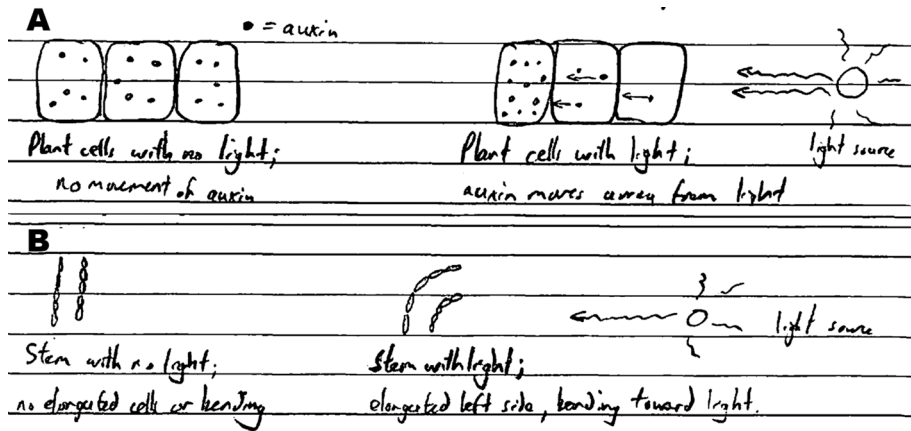 A
• = auxin
Plant cells with no light;
no movement of auxin
Plant cells with light;
auxin moves away from light
light source
B
Stem with no light;
no elongated cells or bending
Stem with light;
elongated left side, bending toward light.
light source